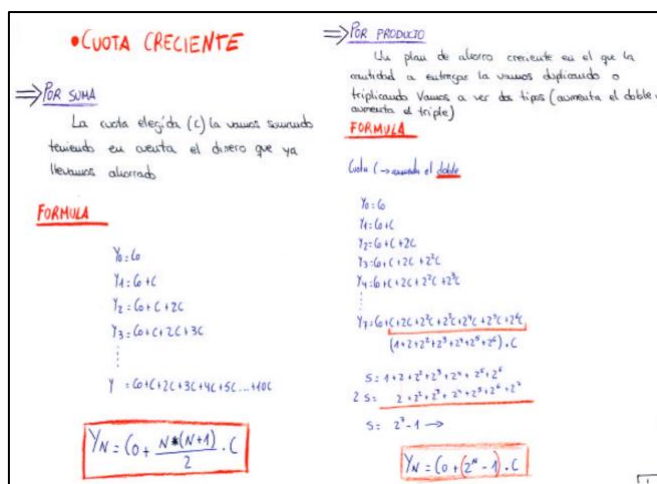 • CUOTA CRECIENTE
⇒ POR SUMA
La cuota elegida (C) la vamos sumando
teniendo en cuenta el dinero que ya
llevamos ahorrado
FORMULA
Y₀ = C₀
Y₁ = C₀ + C
Y₂ = C₀ + C + 2C
Y₃ = C₀ + C + 2C + 3C
⋮
Y = C₀ + C + 2C + 3C + 4C + 5C ... + 10C
Y_N = C₀ + N*(N+1)/2 · C
⇒ POR PRODUCTO
Un plan de ahorro creciente en el que la
cantidad a entregar la vamos duplicando o
triplicando Vamos a ver dos tipos (aumenta el doble
aumenta el triple)
FORMULA
Cuota C → aumenta el doble
Y₀ = C₀
Y₁ = C₀ + C
Y₂ = C₀ + C + 2C
Y₃ = C₀ + C + 2C + 2²C
Y₄ = C₀ + C + 2C + 2²C + 2³C
⋮
Y₇ = C₀ + C + 2C + 2²C + 2³C + 2⁴C + 2⁵C + 2⁶C
(1 + 2 + 2² + 2³ + 2⁴ + 2⁵ + 2⁶) · C
S = 1 + 2 + 2² + 2³ + 2⁴ + 2⁵ + 2⁶
2S = 2 + 2² + 2³ + 2⁴ + 2⁵ + 2⁶ + 2⁷
S = 2⁷ - 1 →
Y_N = C₀ + (2ᴺ - 1) · C